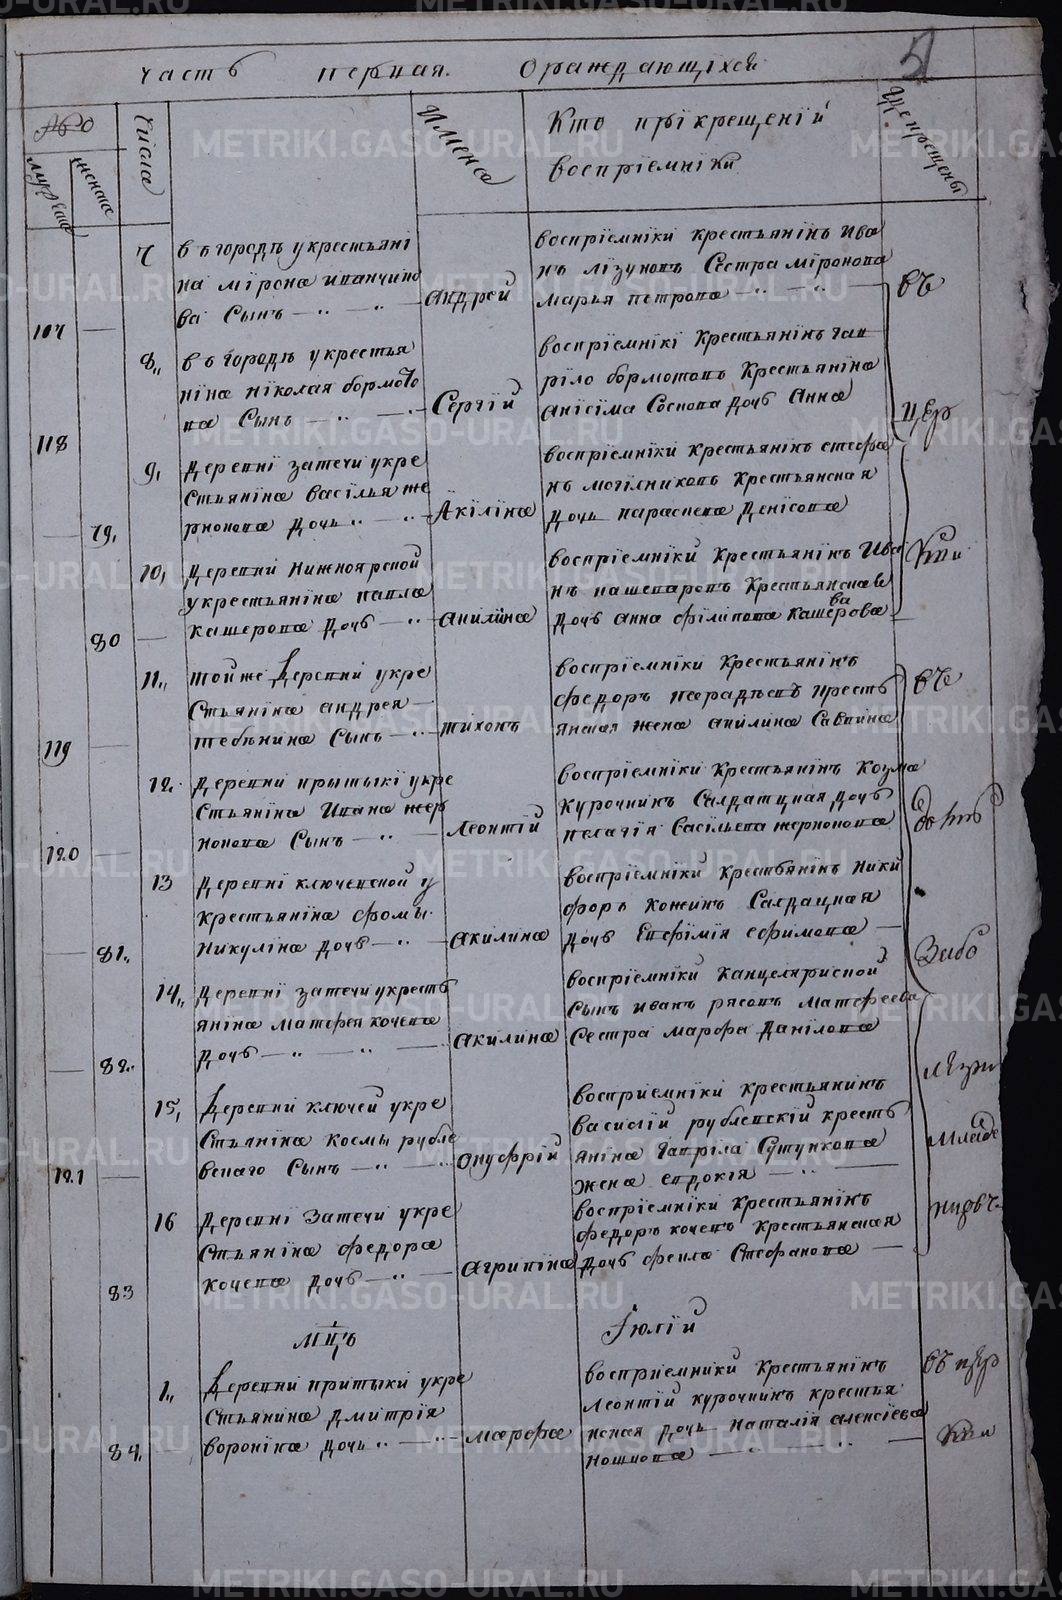 51
часть первая. Ораждающïхся
мужеска
женска
числа
Имена
Кто прïкрещенïй
воспрïемнïки
Где крещены
7
въ городѣ укрестьянï
на мïрона
ва Сынъ
Андрей
воспрïемнïки крестьянïнъ Ива
нъ лïзуновъ Сестра мïронова
марья петрова
въ
117
8,,
въ городѣ укрестья
нïна нïколая бормото
ва Сынъ
Сергïй
воспрïемнïкï Крестьянïнъ гав
рïло бормотовъ Крестьянïна
анïсïма Соснова дочь Анна
цер
118
9,
деревнï затечи укре
стьянïна васïлья же
рнонова дочь
Акïлïна
воспрïемнïки крестьянïнъ стефа
нъ могïлниковъ Крестьянская
дочь параскева Денïсова
79,
кви
10,
деревни нижноярской
укрестьянïна павла
кашерова дочь
акилïна
воспрïемнïки крестьянïнъ Ива
нъ кашеваровъ Крестьянская
дочь анна фïлипова кашерова
ва
80
11,,
тойже деревни укре
стьянïна андрея
тебѣнина Сынъ
тïхонъ
воспрïемнïки крестьянïнъ
федоръ кресть
янская жена акилина Саввïна
119
въ
12.
деревни прытыкï укре
стьянïна Ивана жер
нокова Сынъ
леонтïй
воспрïемнïки крестьянïнъ козма
курочкинъ Салдатцкая дочь
пелагïя васïльева жернокова
120
13
деревнï ключевской у
крестьянïна фомы
никулïна дочь
акилина
воспрïемнïки крестьянïнъ ники
форъ кожинъ Салдацкая
дочь Евфïмïя ефимова
81,,
14,,
деревнï затечи укресть
янïна матфея кочева
дочь
акилина
воспрïемнïки канцелярской
сынъ иванъ рясовъ матфеева
Сестра марфа данïлова
82,,
15,
деревни ключей укре
стьянïна космы рубле
вскаго Сынъ
онуфрïй
восприемнïки крестьянинъ
василïй рублевскïй кресть
янïна гаврïла Сутункова
жена евдокïя
121
младе
16
деревнï затечи укре
стьянïна федора
кочева дочь
агрипïна
воспрïемнïки крестьянïнъ
федоръ кочевъ крестьянская
дочь фекла Стефанова
83
мцъ Iюлïй
1,,
деревни притыки укре
стьянина дмитрïя
воронïна дочь
марфа
восприемники крестьянïнъ
леонтïй курочкинъ крестья
нская дочь наталïя алексïева
84,
въ цер
кви
METRIKI.GASO-URAL.RU